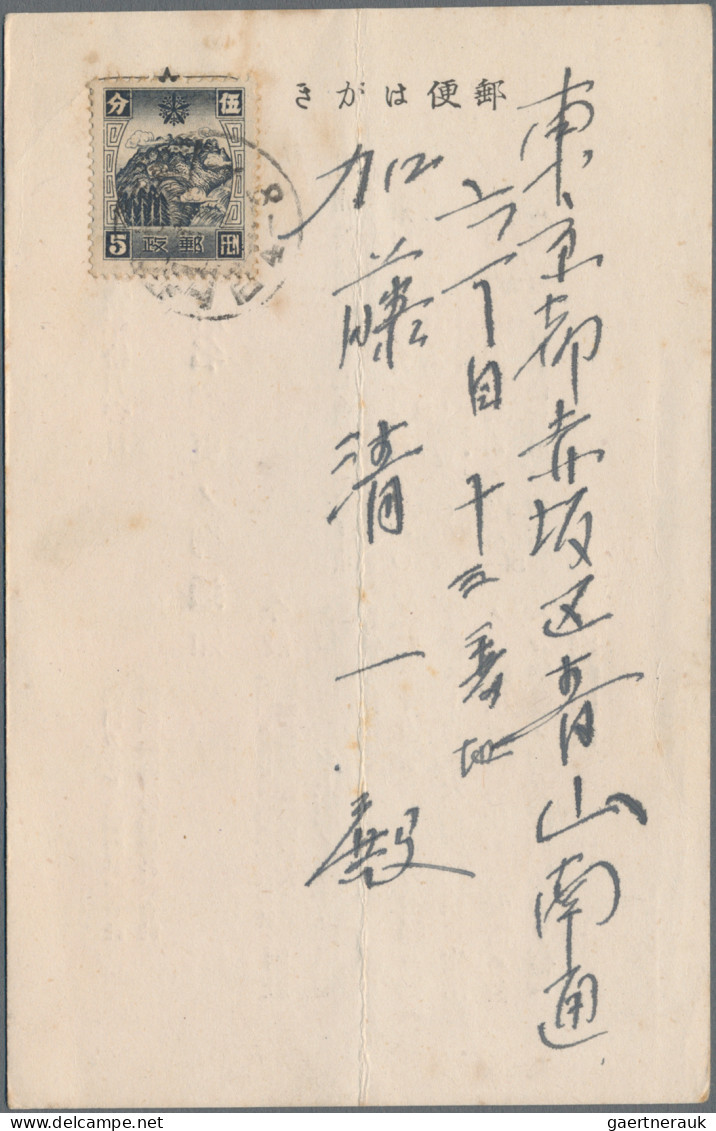 郵便はがき
東京都赤坂区青山南通
六丁目十五番地
加藤清一殿
伍分
5 郵政
gaertnerauk